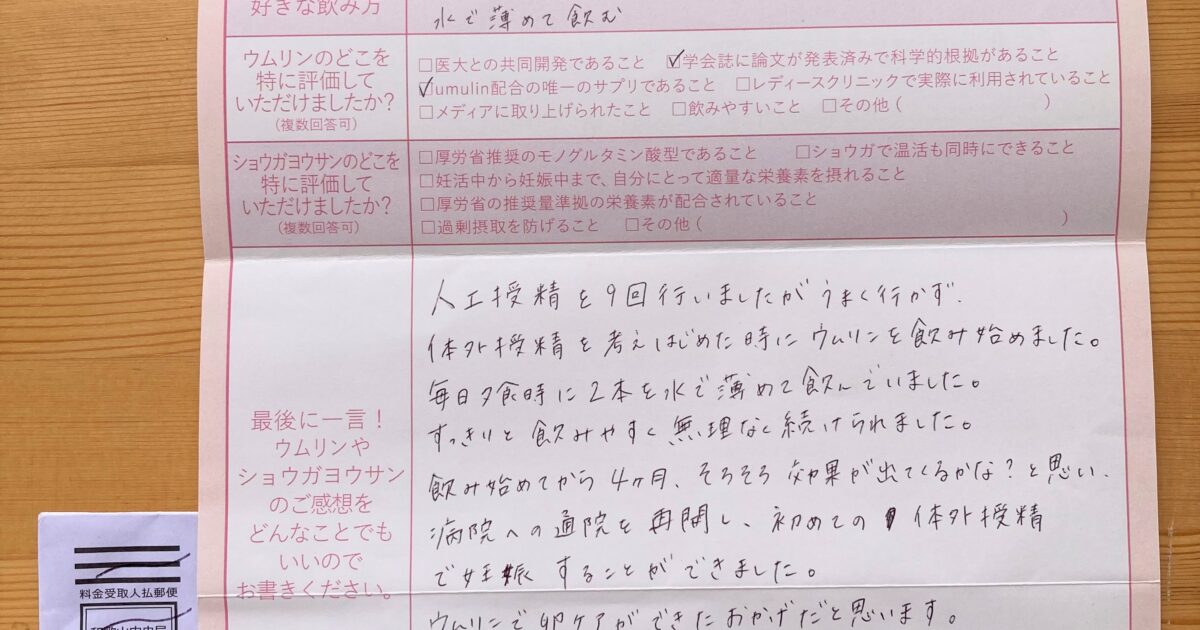 好きな飲み方
水で薄めて飲む
ウムリンのどこを
特に評価して
いただけましたか?
(複数回答可)
□医大との共同開発であること ☑学会誌に論文が発表済みで科学的根拠があること
☑umulin配合の唯一のサプリであること □レディースクリニックで実際に利用されていること
□メディアに取り上げられたこと □飲みやすいこと □その他 ( )
ショウガヨウサンのどこを
特に評価して
いただけましたか?
(複数回答可)
□厚労省推奨のモノグルタミン酸型であること □ショウガで温活も同時にできること
□妊活中から妊娠中まで、自分にとって適量な栄養素を摂れること
□厚労省の推奨量準拠の栄養素が配合されていること
□過剰摂取を防げること □その他 ( )
最後に一言!
ウムリンや
ショウガヨウサン
のご感想を
どんなことでも
いいので
お書きください。
人工授精を9回行いましたがうまく行かず、
体外授精を考えはじめた時にウムリンを飲み始めました。
毎日夕食時に2本を水で薄めて飲んでいました。
すっきりと飲みやすく無理なく続けられました。
飲み始めてから4ヶ月、そろそろ効果が出てくるかな?と思い、
病院への通院を再開し、初めての体外授精
で妊娠することができました。
ウムリンで卵ケアができたおかげだと思います。
料金受取人払郵便